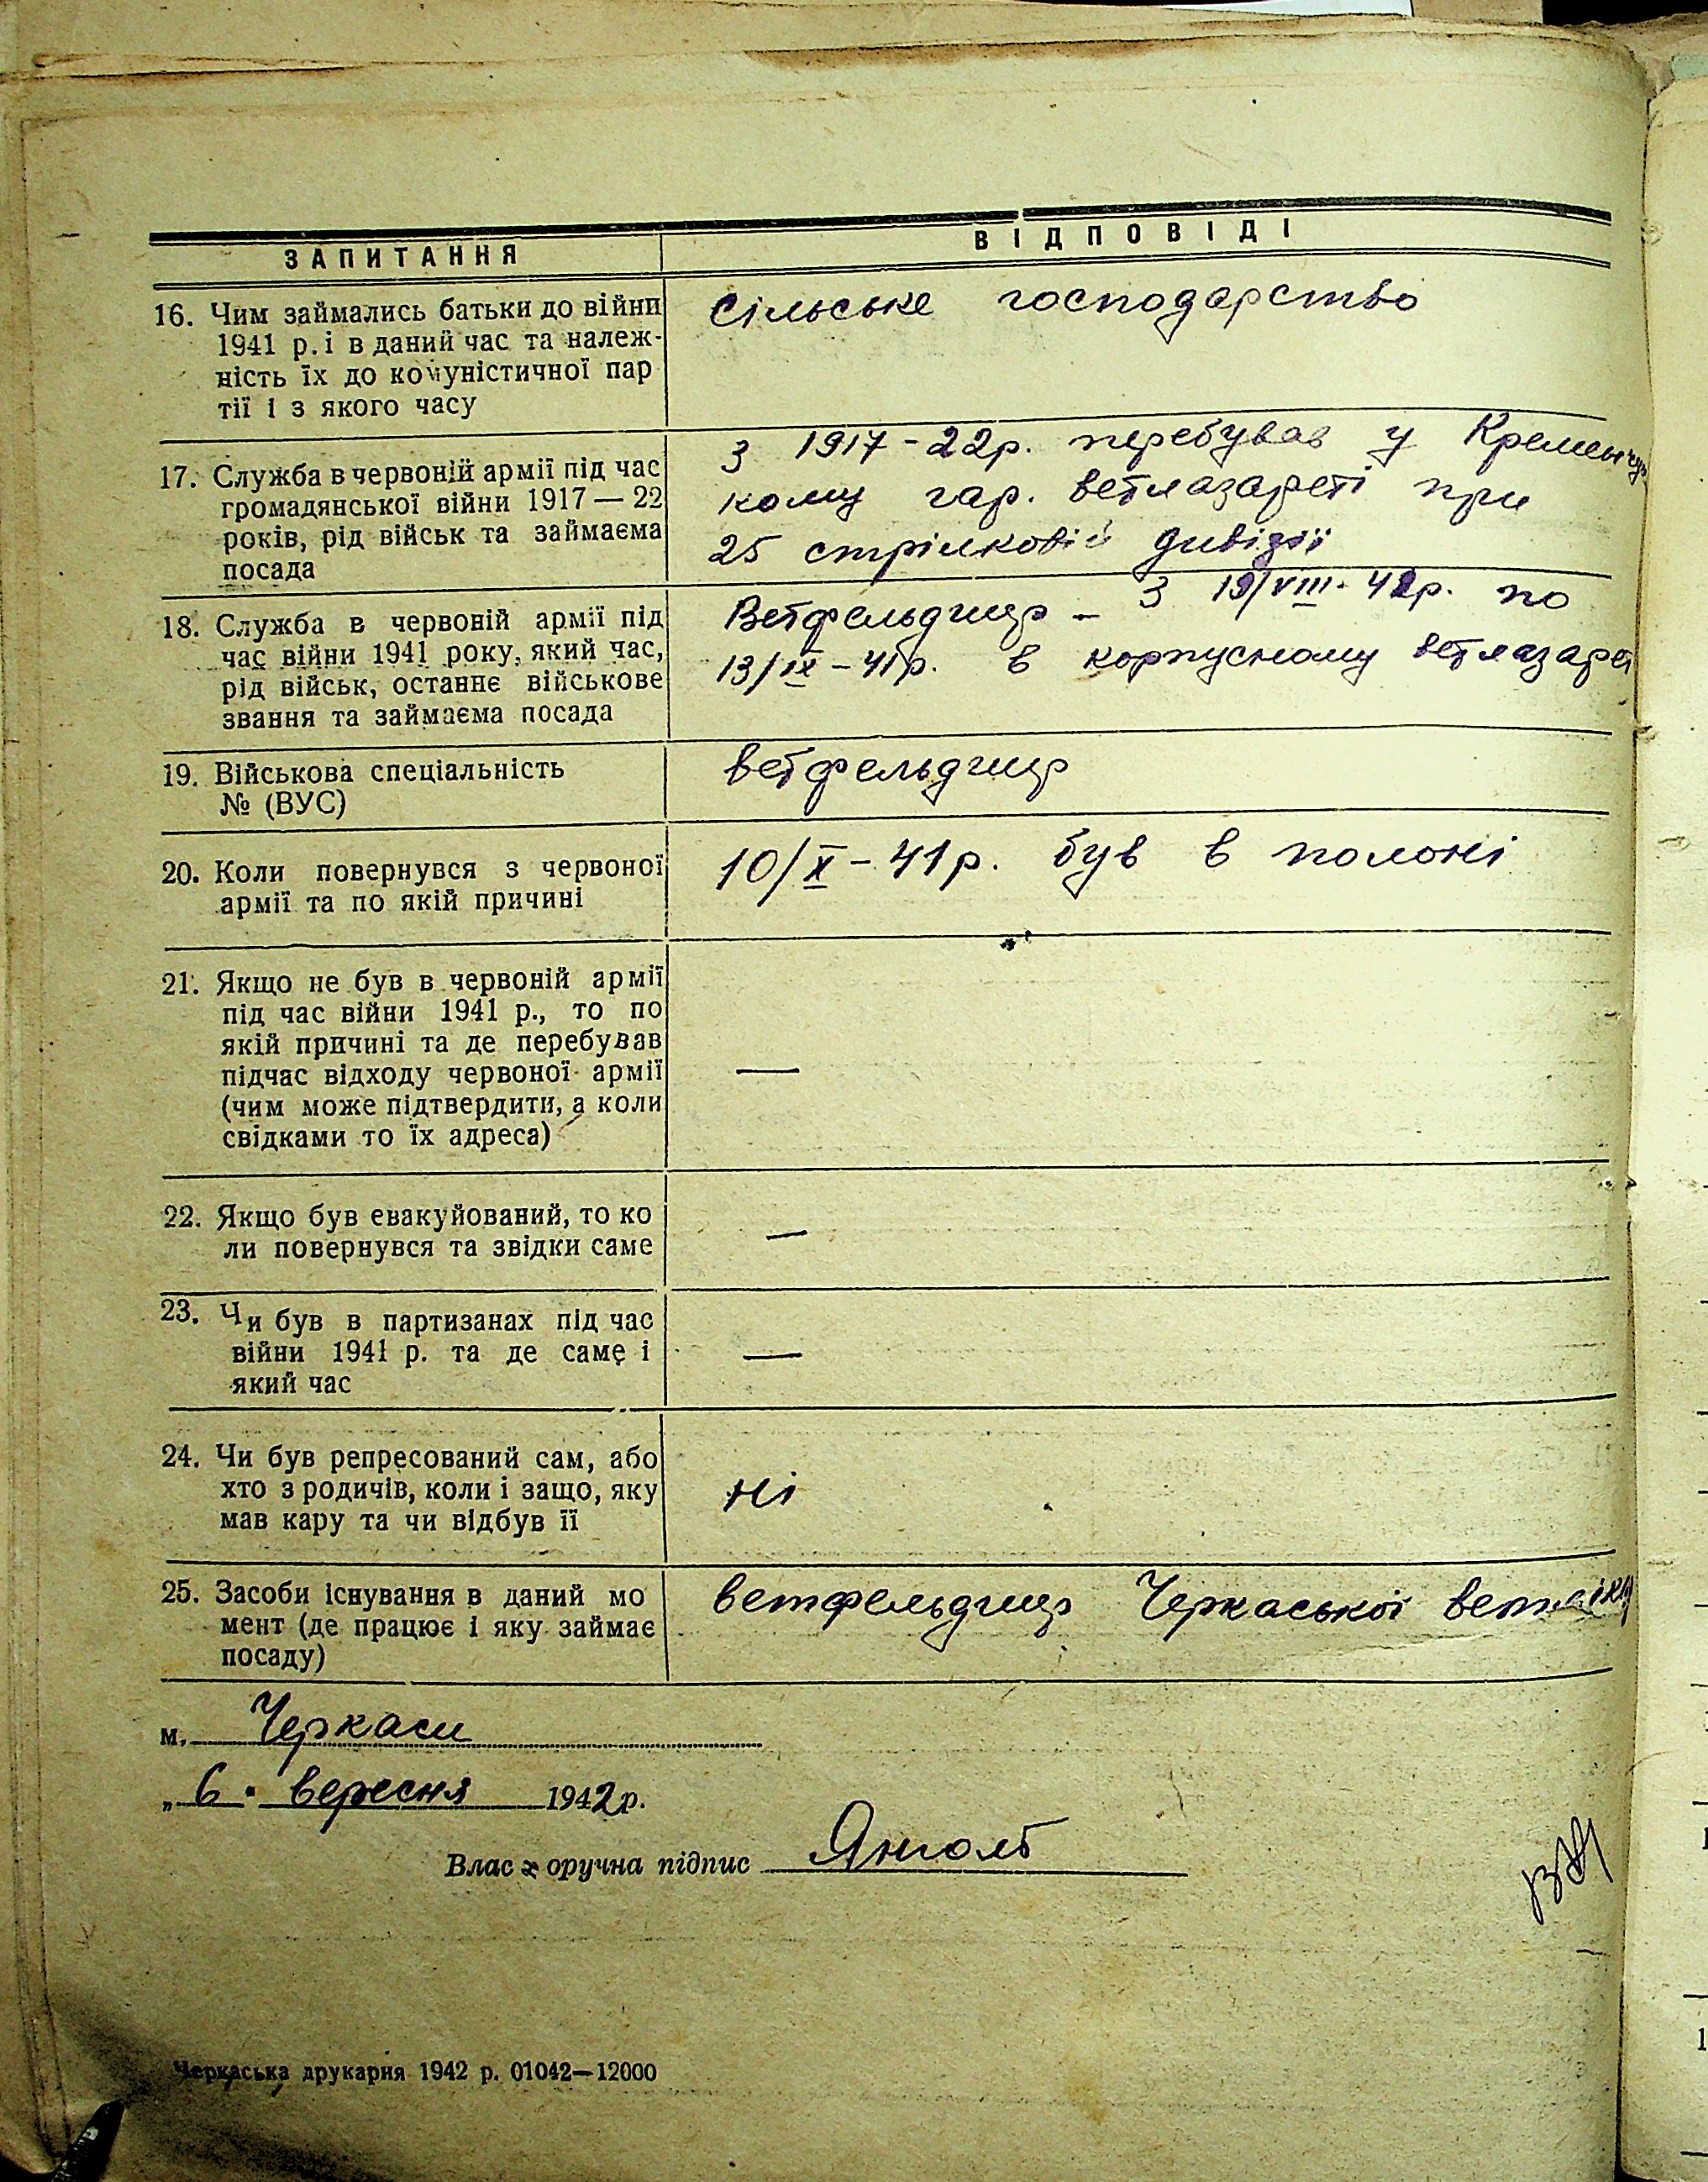 ЗАПИТАННЯ
ВІДПОВІДІ
16. Чим займались батьки до війни
1941 р. і в даний час та належ-
ність їх до комуністичної пар
тії і з якого часу
сільське господарство
17. Служба в червоній армії під час
громадянської війни 1917 — 22
років, рід військ та займаєма
посада
З 1917-22р. перебував у Кременчуц
кому гар. ветлазареті при
25 стрілковій дивізії
18. Служба в червоній армії під
час війни 1941 року, який час,
рід військ, останнє військове
звання та займаєма посада
Ветфельдшер - з 19/VIII- по
13/IX-41р. в корпусному ветлазареті
19. Військова спеціальність
№ (ВУС)
ветфельдшер
20. Коли повернувся з червоної
армії та по якій причині
10/X-41р. був в полоні
21. Якщо не був в червоній армії
під час війни 1941 р., то по
якій причині та де перебував
підчас відходу червоної армії
(чим може підтвердити, а коли
свідками то їх адреса)
—
22. Якщо був евакуйований, то ко
ли повернувся та звідки саме
—
23. Чи був в партизанах під час
війни 1941 р. та де саме і
який час
—
24. Чи був репресований сам, або
хто з родичів, коли і защо, яку
мав кару та чи відбув її
ні
25. Засоби існування в даний мо
мент (де працює і яку займає
посаду)
ветфельдшер Черкаської
м. Черкаси
„ 6 " вересня 1942р.
Влас оручна підпис
Черкаська друкарня 1942 р. 01042—12000